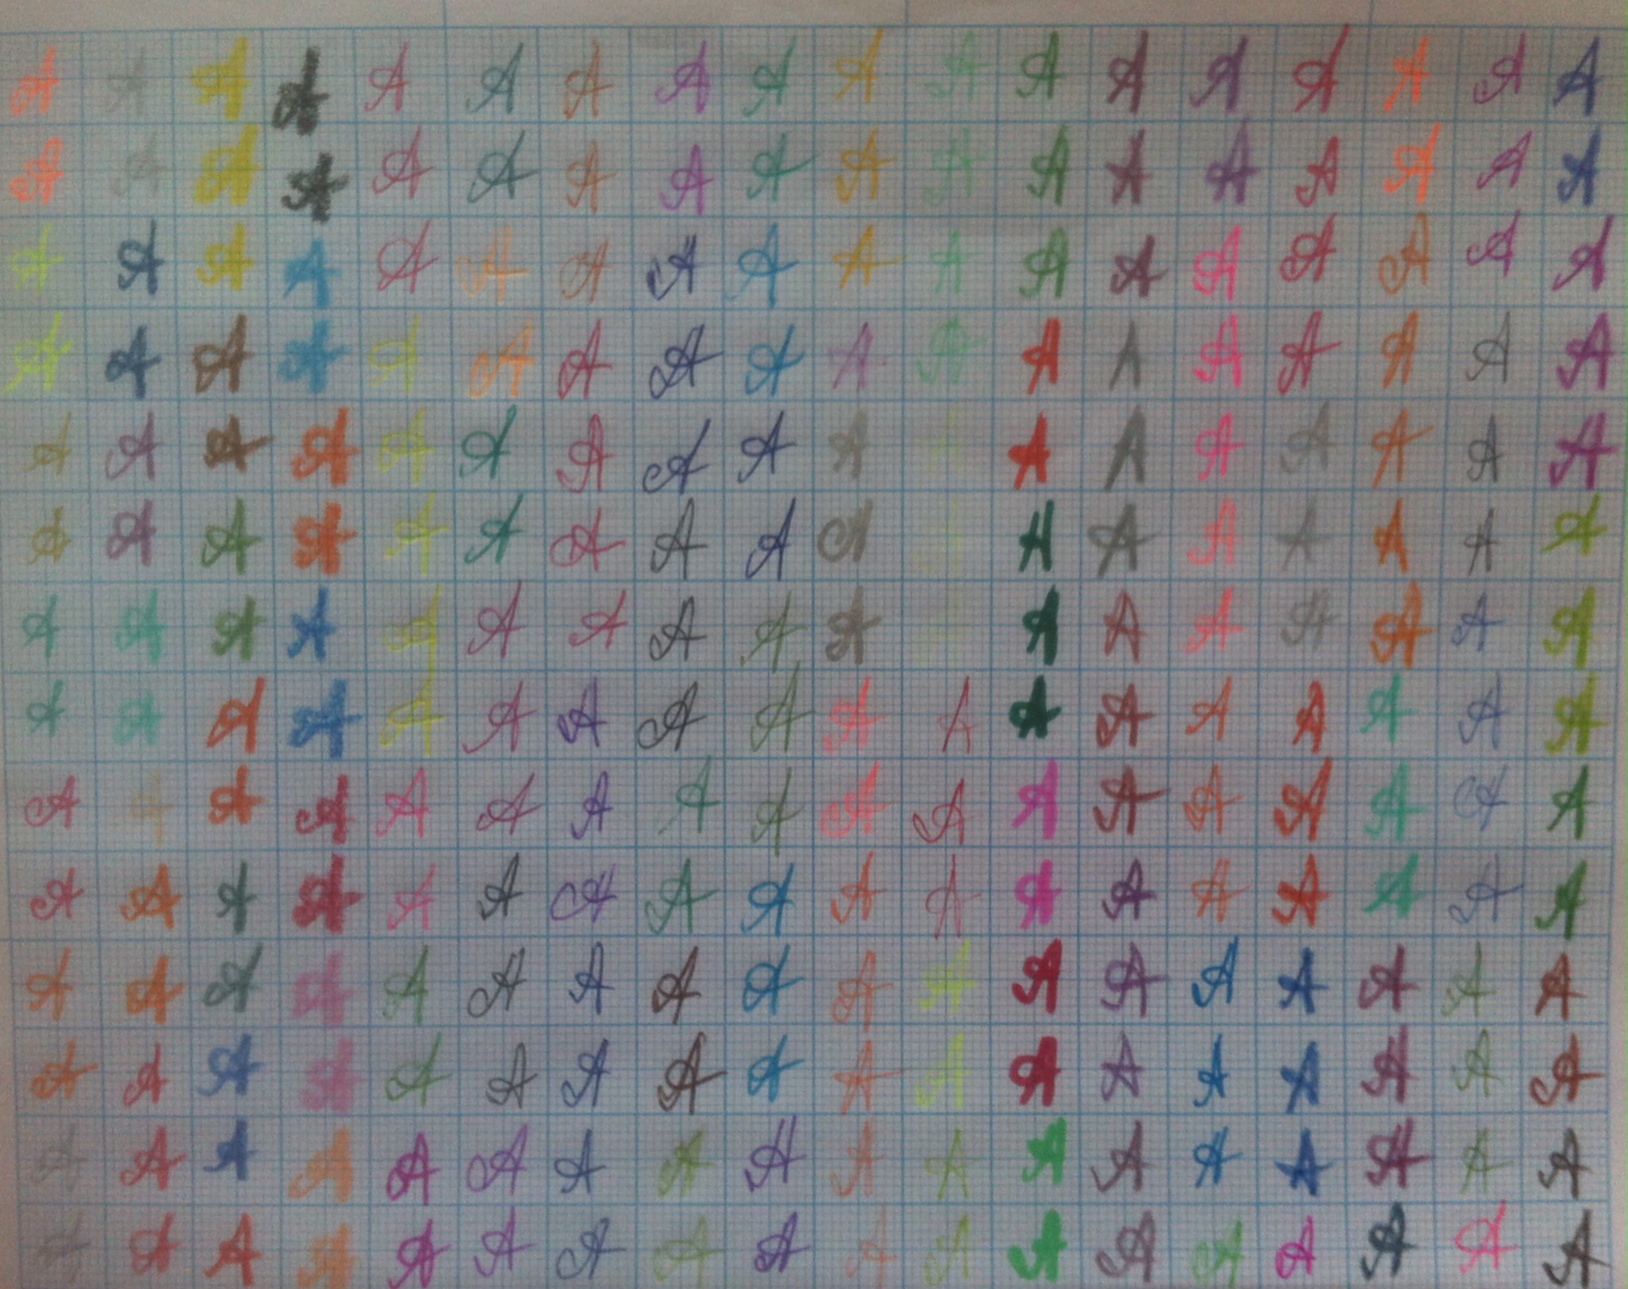 A A A A A A A A A A A A A A A A A A
A A A A A A A A A A A A A A A A A A
A A A A A A A A A A A A A A A A A A
A A A A A A A A A A A A A A A A A A
A A A A A A A A A A A A A A A A A A
A A A A A A A A A A A A A A A A A A
A A A A A A A A A A A A A A A A A A
A A A A A A A A A A A A A A A A A A
A A A A A A A A A A A A A A A A A A
A A A A A A A A A A A A A A A A A A
A A A A A A A A A A A A A A A A A A
A A A A A A A A A A A A A A A A A A
A A A A A A A A A A A A A A A A A A
A A A A A A A A A A A A A A A A A A